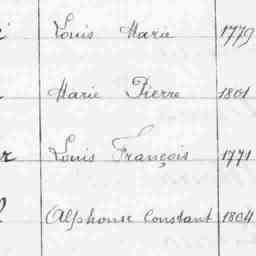 Louis Marie 1779
Marie Pierre 1801
Louis François 1771
Alphonse Constant 1804